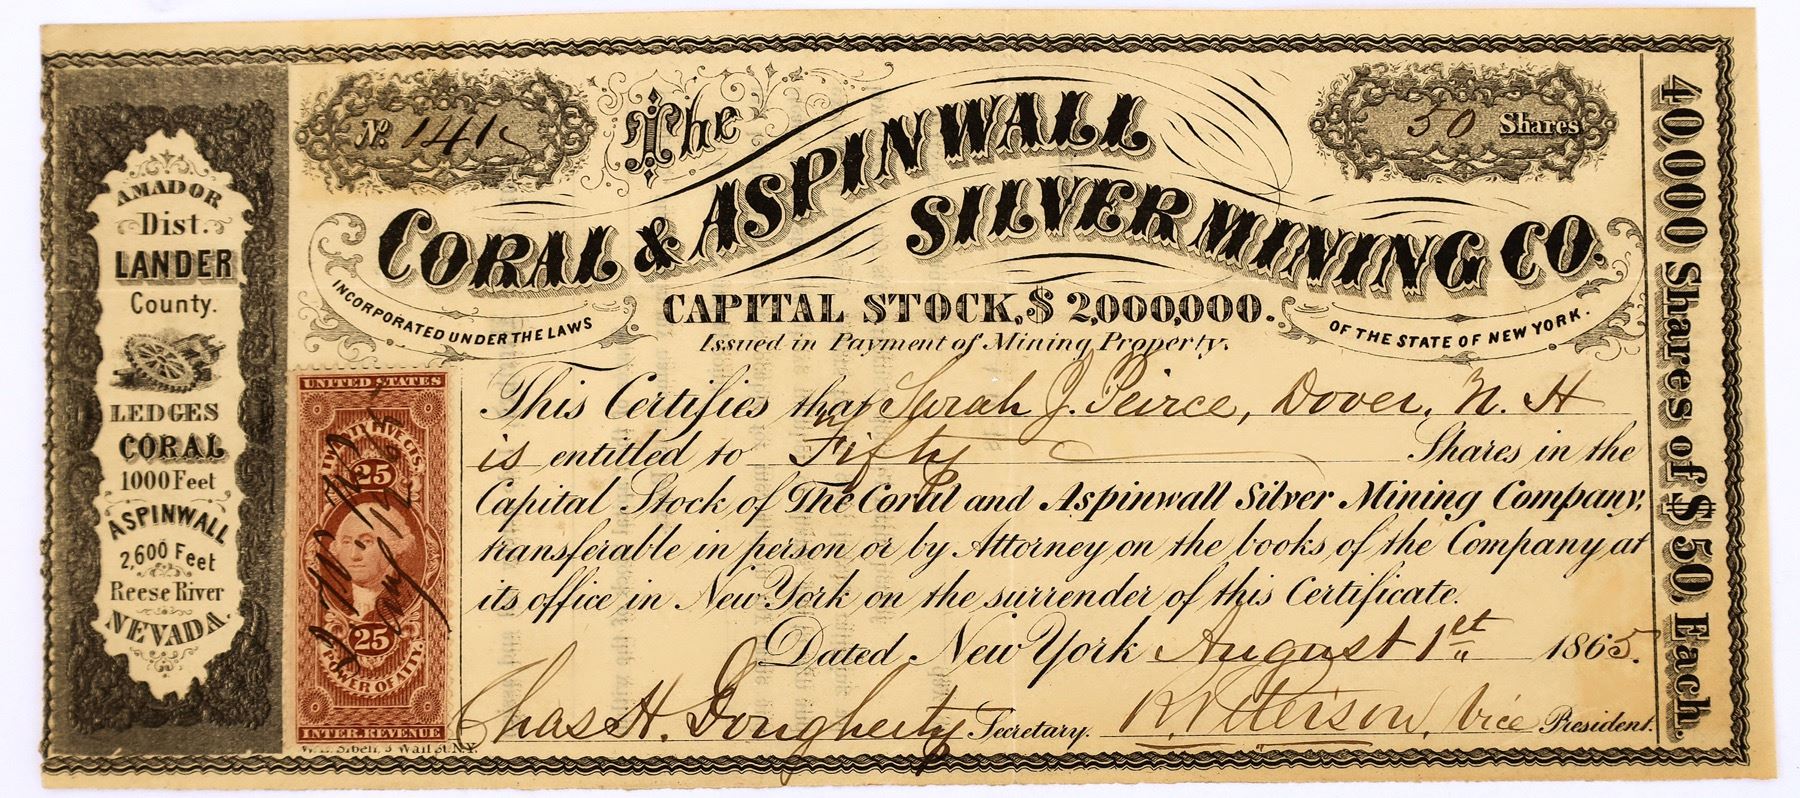 AMADOR
Dist.
LANDER
County.
LEDGES
CORAL
1000 Feet
ASPINWALL
2,600 Feet
Reese River
NEVADA.
No. 141
The
50 Shares
CORAL & ASPINWALL
SILVER MINING CO.
INCORPORATED UNDER THE LAWS
OF THE STATE OF NEW YORK.
CAPITAL STOCK, $ 2,000,000.
Issued in Payment of Mining Property.
This Certifies that Sarah J. Peirce, Dover, N. H
is entitled to Fifty Shares in the
Capital Stock of The Coral and Aspinwall Silver Mining Company,
transferable in person or by Attorney on the books of the Company at
its office in New York on the surrender of this Certificate.
Dated New York August 1st 1865.
Chas H. Dougherty Secretary. Vice President.
UNITED STATES
TWENTY FIVE CTS.
25
25
POWER OF AT'Y.
INTER. REVENUE
40,000 Shares of $50, Each.